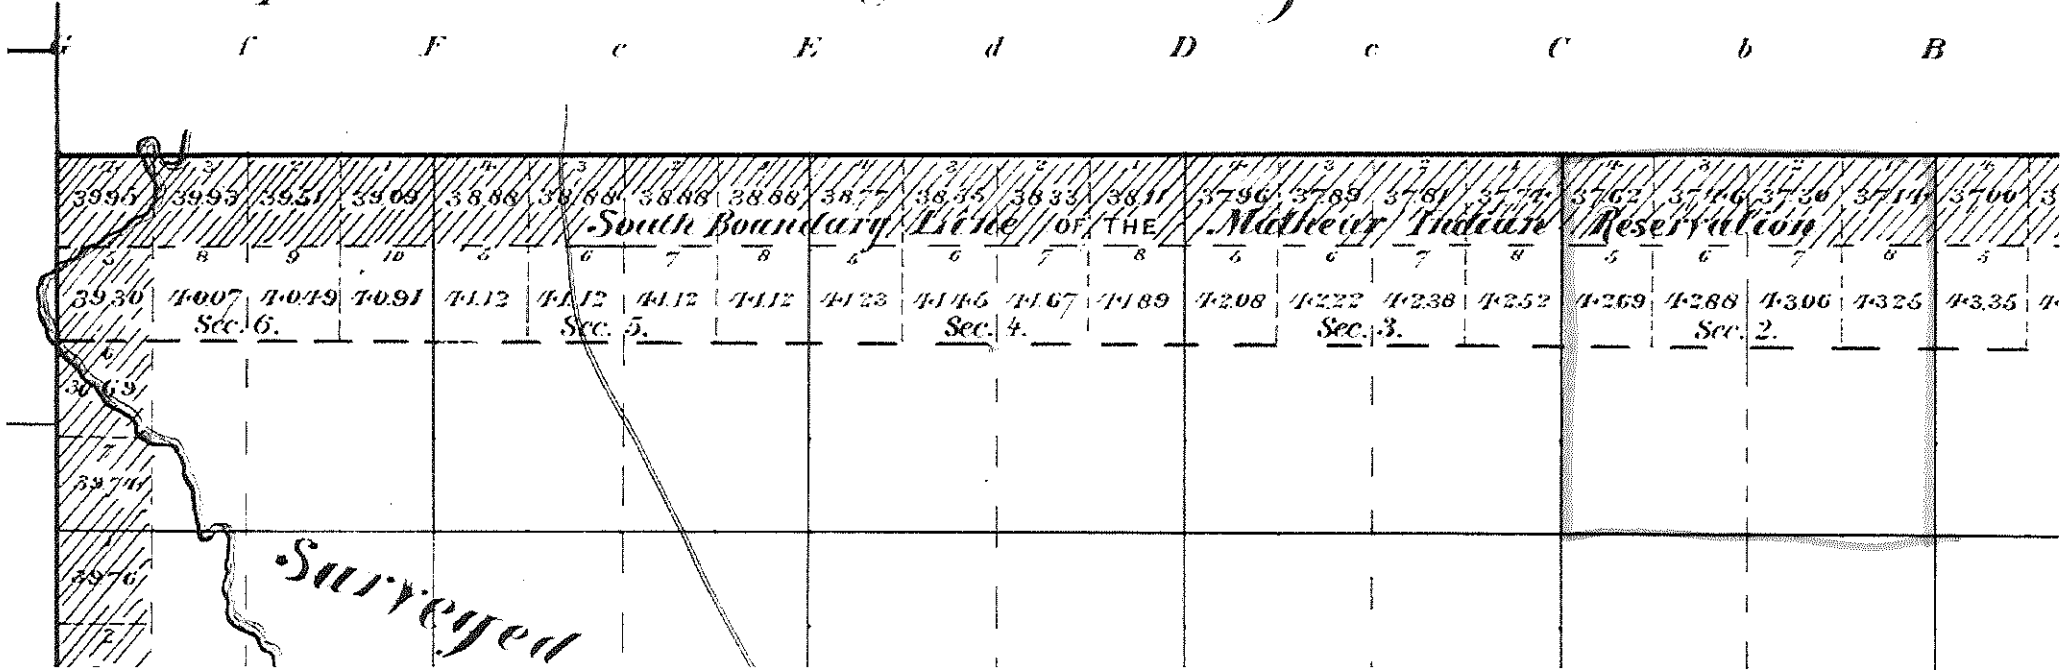 G f F e E d D c C b B
4 3 2 1 4 3 2 1 4 3 2 1 4 3 2 1 4 3 2 1 4
39.95 39.93 39.51 39.09 38.88 38.88 38.88 38.88 38.77 38.55 38.33 38.11 37.96 37.89 37.81 37.74 37.62 37.46 37.30 37.14 37.00
South Boundary Line OF THE Malheur Indian Reservation
5 8 9 10 5 6 7 8 5 6 7 8 5 6 7 8 5 6 7 8 5
39.30 40.07 40.49 40.91 41.12 41.12 41.12 41.12 41.23 41.45 41.67 41.89 42.08 42.22 42.38 42.52 42.69 42.88 43.06 43.25 43.35
Sec. 6. Sec. 5. Sec. 4. Sec. 3. Sec. 2.
6
7
39.74
1
39.76
Surveyed
2